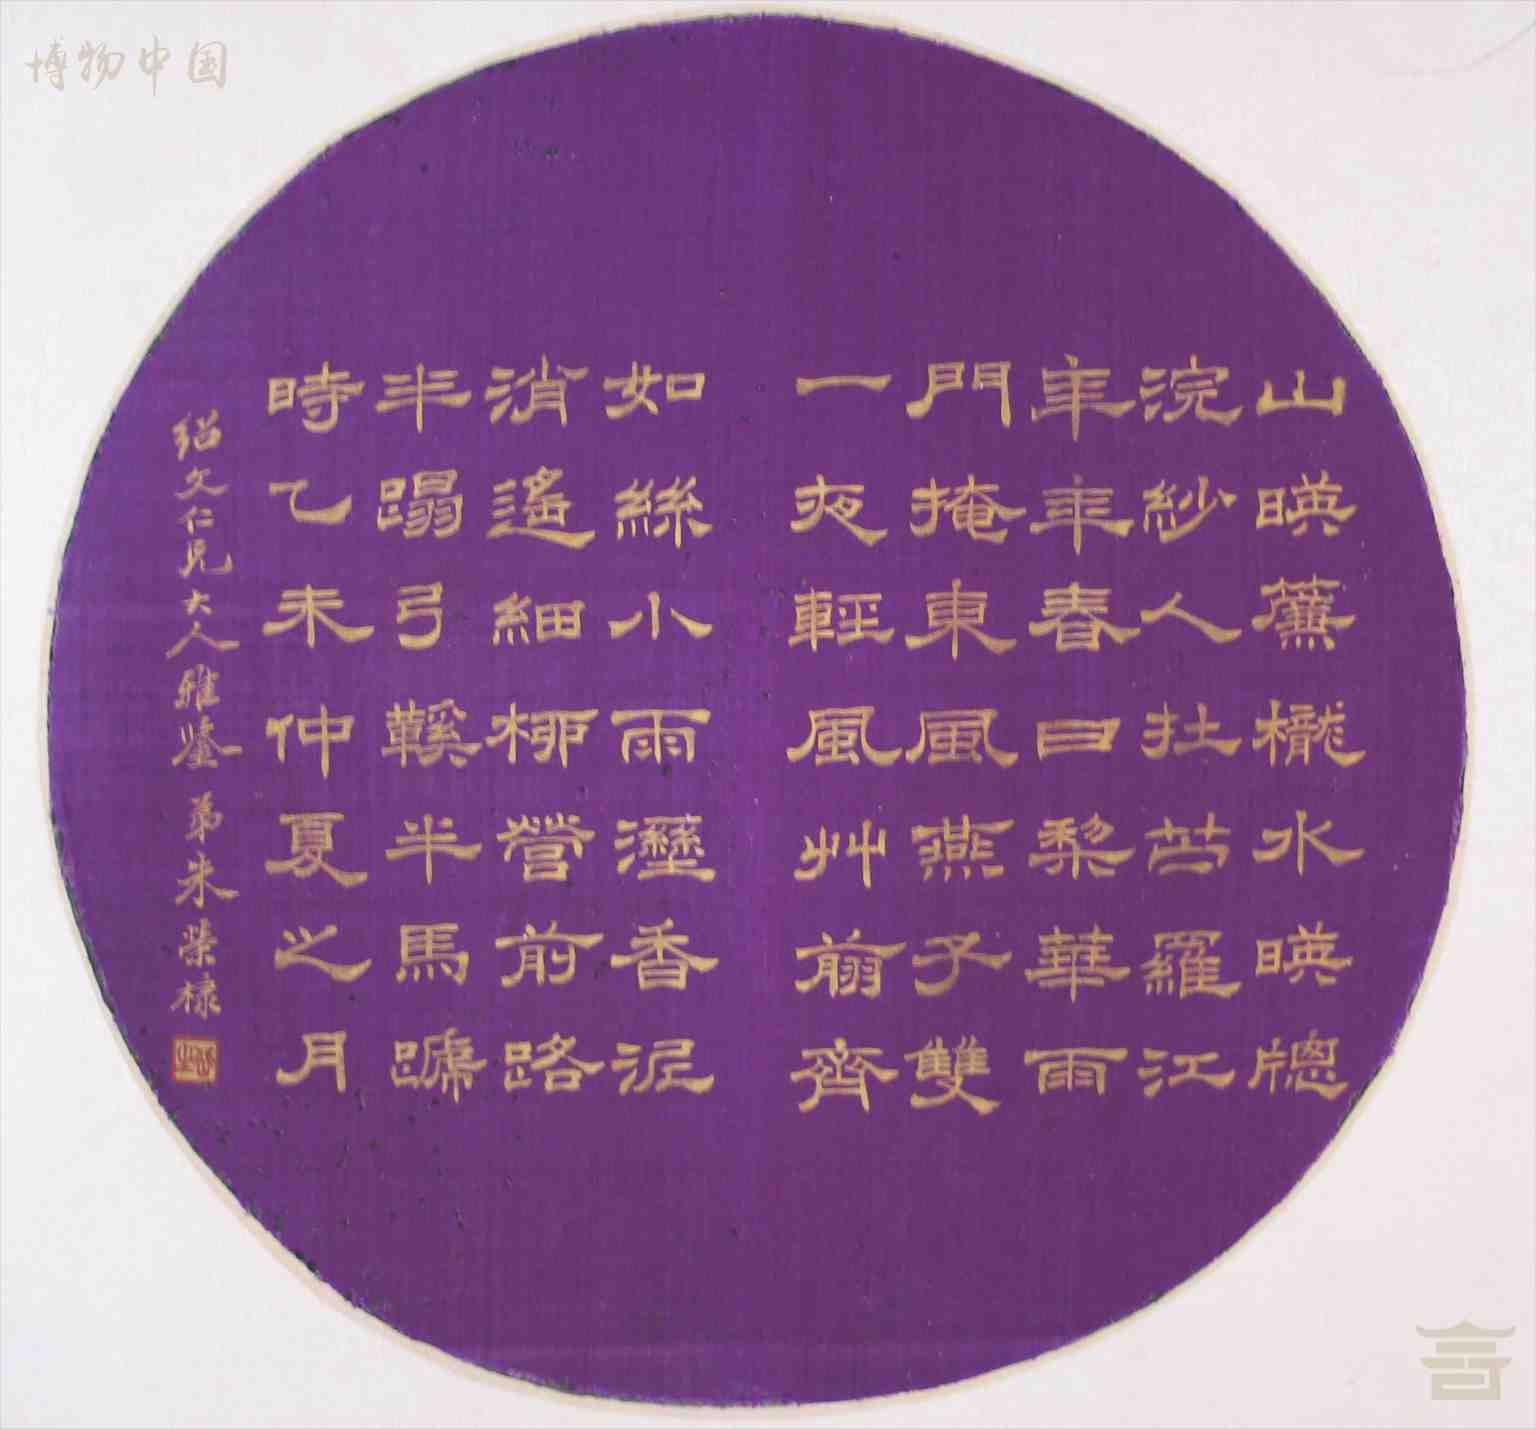 博物中国
山暎簾櫳水暎牕
浣紗人在苧羅江
年年春日棃華雨
門掩東風燕子雙
一夜輕風艸剪齊
如絲小雨溼香泥
消遙細柳營前路
半蹋弓鞵半馬蹏
時乙未仲夏之月
紹文仁兄大人雅鑒 弟朱榮棣